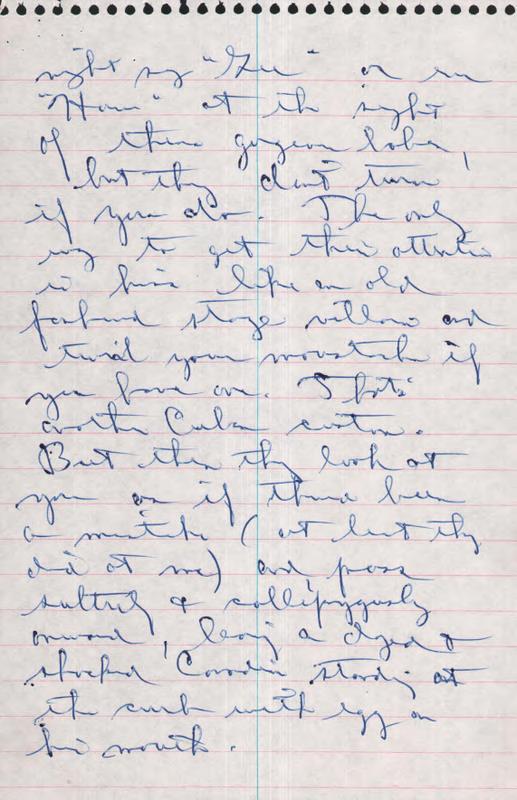 might say "Gee" or even
"Hmm" at the sight
of these gorgeous babes,
but they don't turn
if you do. The only
way to get their attention
is hiss like an old
fashioned stage villain and
twirl your moustache if
you have one. That's
another Cuban custom.
But then they look at
you as if there'd been
a mistake (at least they
did at me) and pass
sultrily & callipygously
onward, leaving a dazed &
shocked Canadian standing at
the curb with egg on
his mouth.